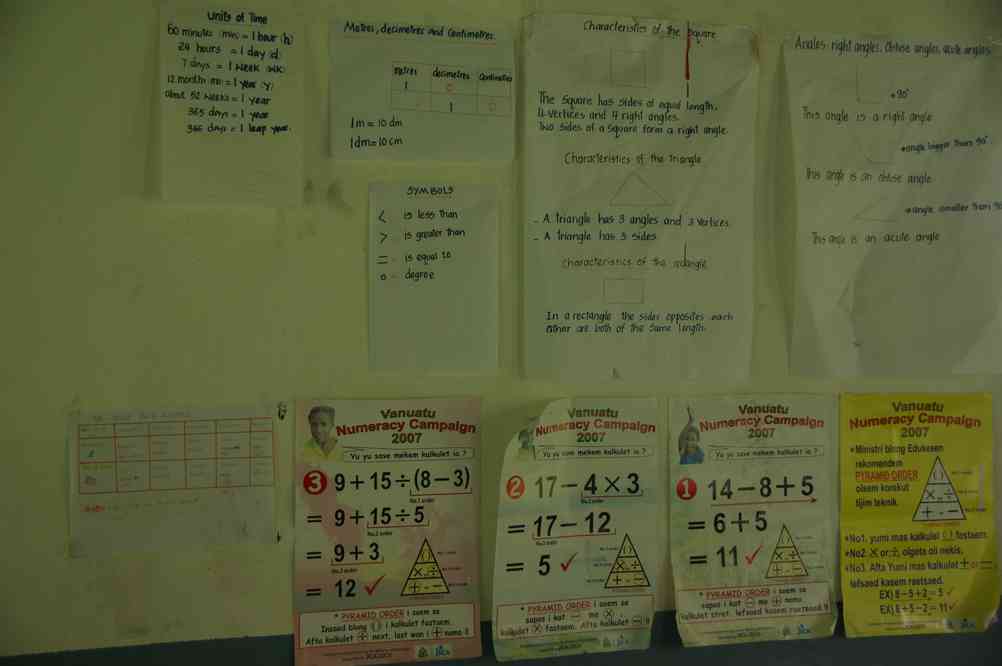 Units of Time
60 minutes (min) = 1 hour (h)
24 hours = 1 day (d)
7 days = 1 week (wk)
12 months (m) = 1 year (y)
about 52 weeks = 1 year
365 days = 1 year
366 days = 1 leap year
Metres, decimetres and Centimetres
metres decimetres Centimetres
1 0
1 0
1m = 10 dm
1dm = 10 cm
SYMBOLS
< is less than
> is greater than
= is equal to
o = degree
Characteristics of the square
The square has sides of equal length,
4 vertices and 4 right angles.
Two sides of a square form a right angle.
Characteristics of the triangle
- A triangle has 3 angles and 3 vertices.
- A triangle has 3 sides.
Characteristics of the rectangle
In a rectangle the sides opposites each
other are both of the same length.
Angles: right angles, obtuse angles, acute angles
90°
This angle is a right angle
angle bigger than 90°
This angle is an obtuse angle
angle smaller than 90
This angle is an acute angle
Vanuatu
Numeracy Campaign
2007
Yu yu save mekem kalkulet ia ?
3 9 + 15 ÷ (8 – 3)
No.1 order
= 9 + 15 ÷ 5
No.2 order
= 9 + 3
No.3 order
= 12 ✓
( )
× ÷
+ −
* PYRAMID ORDER i soem se
Insaed blong ( ) i kalkulet fastaem.
Afta kalkulet ÷ next, last wan i + nomo !!
JICA
Vanuatu
Numeracy Campaign
2007
Yu yu save mekem kalkulet ia ?
2 17 – 4 × 3
No.2 order
= 17 – 12
No.3 order
= 5 ✓
( )
× ÷
+ −
* PYRAMID ORDER i soem se
sapos i kat − mo ×
kalkulet × fastaem. Afta kalkulet − !!
JICA
Vanuatu
Numeracy Campaign
2007
Yu yu save mekem kalkulet ia ?
1 14 – 8 + 5
= 6 + 5
= 11 ✓
( )
× ÷
+ −
* PYRAMID ORDER i soem se
sapos i kat − mo + nomo
kalkulet stret. lefsaed kasem raetsaed !!
JICA
Vanuatu
Numeracy Campaign
2007
• Ministri blong Edukesen
rekomendem
PYRAMID ORDER
olsem korekut
tijim teknik.
( )
× ÷
+ −
• No1. yumi mas kalkulet ( ) fastaem.
• No2. × or ÷, olgeta oli nekis.
• No3. Afta Yumi mas kalkulet + or −
lefsaed kasem raetsaed.
EX) 8 – 5 + 2 = 5 ✓
EX) 8 + 5 – 2 = 11 ✓
JICA